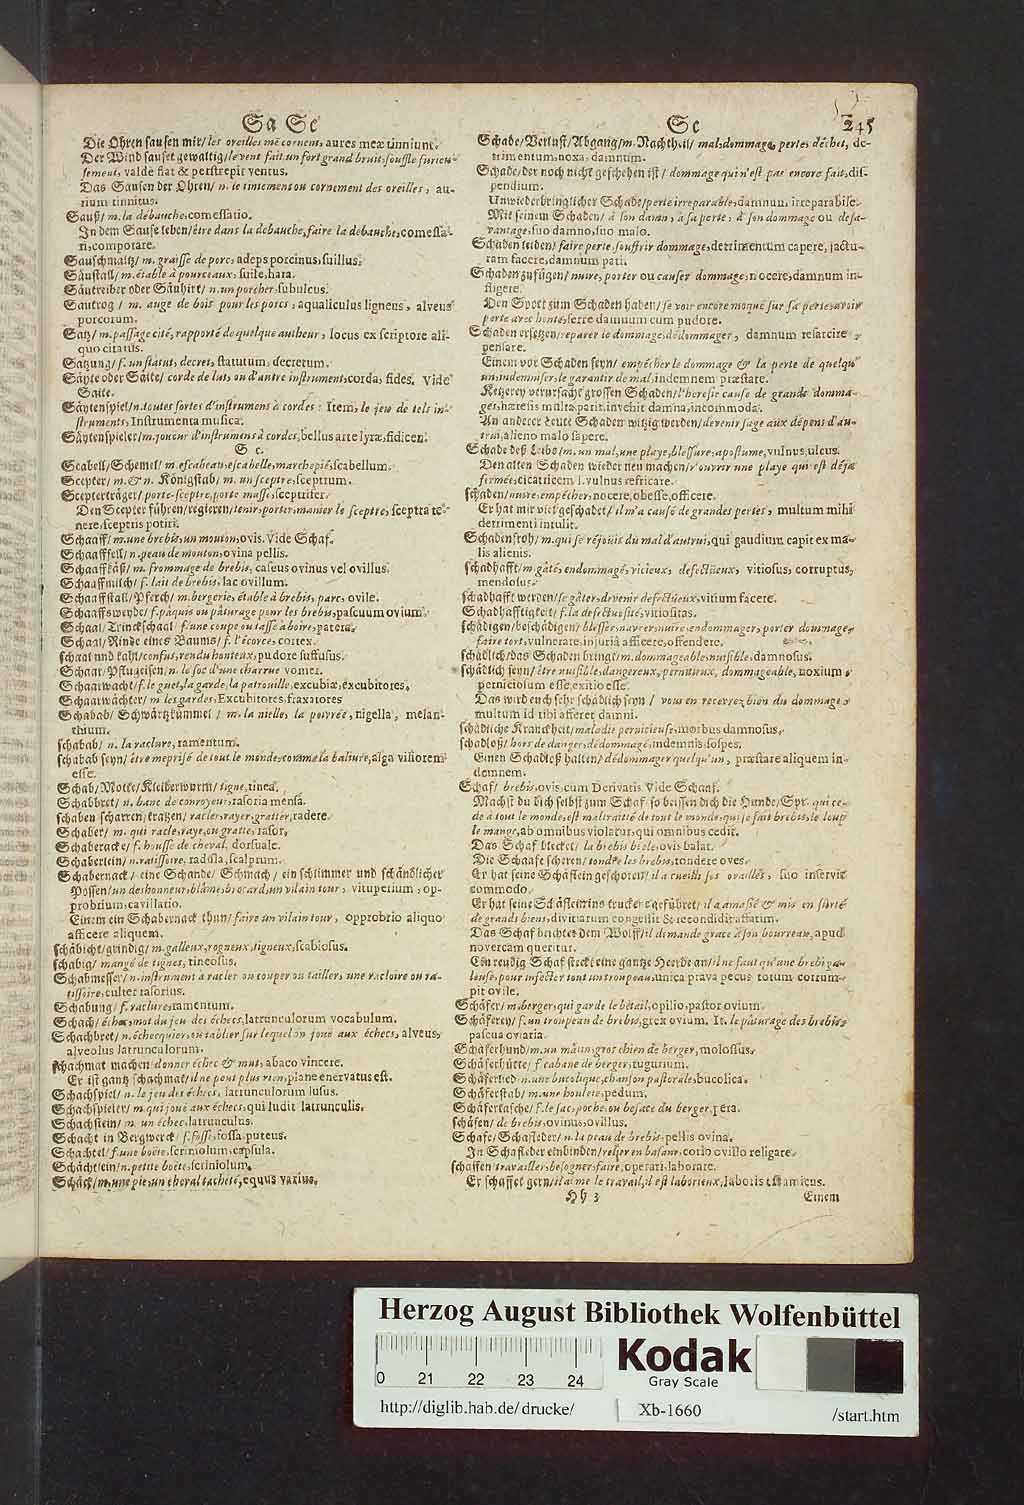 Sa Sc
Die Ohren sausen mir/ les oreilles me cornent, aures meæ tinniunt.
Der Wind sauset gewaltig/ le vent fait un fort grand bruit, souffle furieu-
sement, valde flat & perstrepit ventus.
Das Sausen der Ohren/ n. le tintement ou cornement des oreilles, au-
rium tinnitus.
Sauß/ m. la débauche, comessatio.
In dem Sause leben/ être dans la débauche, faire la débauche, comessa-
ri, compotare.
Sauschmaltz/ m. graisse de porc, adeps porcinus, suillus.
Säustall/ m. étable à pourceaux, suile, hara.
Säutreiber oder Säuhirt/ n. un porcher, subulcus.
Sautrog/ m. auge de bois pour les porcs, aqualiculus ligneus, alveus
porcorum.
Satz/ m. passage cité, rapporté de quelque autheur, locus ex scriptore ali-
quo citatus.
Satzung/ f. un statut, decret, statutum, decretum.
Säyte oder Saite/ corde de lut, ou d'autre instrument, corda, fides. Vide
Saite.
Säytenspiel/ n. toutes sortes d'instrumens à cordes: Item, le jeu de tels in-
struments, Instrumenta musica.
Säytenspieler/ m. joueur d'instrumens à cordes, bellus arte lyræ, fidicen.
S c.
Scabell/ Schemel/ m. escabeau, escabelle, marchepié, scabellum.
Scepter/ m. & n. Königstab/ m. un sceptre, sceptrum.
Scepterträger/ porte-sceptre, porte masse, sceptrifer.
Den Scepter führen/ regieren/ tenir, porter, manier le sceptre, sceptra te-
nere, sceptris potiri.
Schaaff/ m. une brebis, un mouton, ovis. Vide Schaf.
Schaaffell/ n. peau de mouton, ovina pellis.
Schaaffkäß/ m. frommage de brebis, caseus ovinus vel ovillus.
Schaaffmilch/ f. lait de brebis, lac ovillum.
Schaaffstall/ Pferch/ m. bergerie, étable à brebis, parc, ovile.
Schaaffsweyde/ f. pâquis ou pâturage pour les brebis, pascuum ovium.
Schaal/ Trinckschaal/ f. une coupe ou tasse à boire, patera.
Schaal/ Rinde eines Baums/ f. l'écorce, cortex.
schaal und kahl/ confus, rendu honteux, pudore suffusus.
Schaar/ Pflugeisen/ n. le soc d'une charrue vomer.
Schaarwacht/ f. le guet, la garde, la patrouille, excubiæ, excubitores.
Schaarwächter/ m les gardes, Excubitores fraxatores
Schabab/ Schwartzkümmel/ m. la nielle, la poivrée, nigella, melan-
thium.
schabab/ n. la raclure, ramentum.
schabab seyn/ être meprisé de tout le monde, comme la baliure, alga viliorem
esse.
Schab/ Motte/ Kleiberwurm/ tigne, tinea.
Schabbret/ n. banc de conroyeur, rasoria mensa.
schaben scharren/ kratzen/ racler, rayer, gratter, radere.
Schaber/ m. qui racle, raye, ou gratte, rasor.
Schaberacke/ f. housse de cheval, dorsuale.
Schaberlein/ n. ratissoire, radula, scalprum.
Schabernack/ eine Schande/ Schmach/ ein schlimmer und schändlicher
Possen/ un deshonneur, blâme, brocard, un vilain tour, vituperium, op-
probrium, cavillatio.
Einem ein Schabernack thun/ faire un vilain tour, opprobrio aliquo
afficere aliquem.
schäbicht/ grindig/ m. galleux, rogneux, tigneux, scabiosus.
schabig/ mangé de tignes, tineosus.
Schabmesser/ n. instrument à racler ou couper ou tailler, une racloire ou ra-
tissoire, culter rasorius.
Schabung/ f. raclure, ramentum.
Schach/ échec, mot du jeu des échecs, latrunculorum vocabulum.
Schachbret/ n. échecquier, ou tablier sur lequel on joue aux échecs, alveus,
alveolus latrunculorum.
schachmat machen/ donner échec & mat, abaco vincere.
Er ist gantz schachmat/ il ne peut plus rien, plane enervatus est.
Schachspiel/ n. le jeu des échecs, latrunculorum lusus.
Schachspieler/ m. qui joue aux échecs, qui ludit latrunculis.
Schachstein/ m. un échec, latrunculus.
Schacht in Bergwerck/ f. fosse, fossa puteus.
Schachtel/ f. une boëte, scriniolum, capsula.
Schächtlein/ n. petite boëte, scriniolum.
Schäck/ m. une pie, un cheval tacheté, equus varius.
Sc
245
Schade/ Verlust/ Abgang/ m. Nachtheil/ mal, dommage, perte, déchet, de-
trimentum, noxa, damnum.
Schade/ der noch nicht geschehen ist/ dommage qui n'est pas encore fait, dis-
pendium.
Unwiederbringlicher Schade/ perte irreparable, damnum irreparabile.
Mit seinem Schaden/ à son damn, à sa perte, à son dommage ou desa-
vantage, suo damno, suo malo.
Schaden leiden/ faire perte, souffrir dommage, detrimentum capere, jactu-
ram facere, damnum pati.
Schaden zufügen/ nuire, porter ou causer dommage, nocere, damnum in-
fligere.
Den Spott zum Schaden haben/ se voir encore moqué sur sa perte, avoir
perte avec honte, ferre damnum cum pudore.
Schaden ersetzen/ reparer le dommage, dédommager, damnum resarcire,
pensare.
Einem vor Schaden seyn/ empêcher le dommage & la perte de quelqu'
un, indemniser, le garantir de mal, indemnem præstare.
Ketzerey verursacht grossen Schaden/ l'heresie cause de grands domma-
ges, hæresis multa parit, invehit damna, incommoda.
An anderer Leute Schaden witzig werden/ devenir sage aux dépens d'au-
trui, alieno malo sapere.
Schade deß Leibs/ m. un mal, une playe, blessure, apostume, vulnus, ulcus.
Den alten Schaden wieder neu machen/ r'ouvrir une playe qui est déja
fermée, cicatricem l. vulnus refricare.
schaden/ nuire, empêcher, nocere, obesse, officere.
Er hat mir viel geschadet/ il m'a causé de grandes pertes, multum mihi
detrimenti intulit.
Schadenfroh/ m. qui se réjouis du mal d'autrui, qui gaudium capit ex ma-
lis alienis.
schadhafft/ m. gâté, endommagé, vicieux, defectüeux, vitiosus, corruptus,
mendosus.
schadhafft werden/ se gâter, devenir defectüeux, vitium facere.
Schadhafftigkeit/ f. la defectuosité, vitiositas.
schädigen/ beschädigen/ blesser, navrer, nuire, endommager, porter dommage,
faire tort, vulnerare, injuriâ afficere, offendere.
schädlich/ das Schaden bringt/ m. dommageable, nuisible, damnosus.
schädlich seyn/ être nuisible, dangereux, pernicieux, dommageable, noxium,
perniciosum esse, exitio esse.
Das wird euch sehr schädlich seyn/ vous en recevrez bien du dommage,
multum id tibi afferet damni.
schädliche Kranckheit/ maladie pernicieuse, morbus damnosus.
schadloß/ hors de danger, dédommagé, indemnis, sospes.
Einen Schadloß halten/ dédommager quelqu'un, præstare aliquem in-
demnem.
Schaf/ brebis, ovis, cum Derivatis. Vide Schaaf.
Machst du dich selbst zum Schaf, so beissen dich die Hunde/ Spr. qui ce-
de à tout le monde, est maltraitté de tout le monde, qui se fait brebis, le loup
le mange, ab omnibus violatur, qui omnibus cedit.
Das Schaf blecket/ la brebis béele, ovis balat.
Die Schaafe scheren/ tondre les brebis, tondere oves.
Er hat seine Schäflein geschoren/ il a cueilli ses ovailles, suo inservit
commodo.
Er hat seine Schäflein ins truckene geführet/ il a amassé & mis en sûrté
de grands biens, divitiarum congessit & recondidit affatim.
Das Schaf beichtet dem Wolff/ il demande grace à son bourreau, apud
novercam queritur.
Ein reudig Schaf steckt eine gantze Heerde an/ il ne faut qu'une brebi ga-
leuse, pour infecter tout un troupeau, unica prava pecus totum corrum-
pit ovile.
Schäfer/ m. berger, qui garde le bétail, opilio, pastor ovium.
Schäferey/ f. un troupeau de brebis, grex ovium. It. le pâturage des brebis,
pascua oviaria.
Schäferhund/ m. un mâtin, gros chien de berger, molossus.
Schäferhütte/ f. cabane de berger, tugurium.
Schäferlied/ n. une bucolique, chanson pastorale, bucolica.
Schäferstab/ m. une houlete, pedum.
Schäfertasche/ f. le sac, poche, ou besace du berger, pera.
schäfen/ de brebis, ovinus, ovillus.
Schafs/ Schafleder/ n. la peau de brebis, pellis ovina.
In Schafleder einbinden/ relier en basane, corio ovillo religare.
schaffen/ travailler, besogner, faire, operari, laborare.
Er schaffet gern/ il aime le travail, il est laborieux, laboris est amicus.
Hh 3
Einem
Herzog August Bibliothek Wolfenbüttel
0 21 22 23 24
Kodak
Gray Scale
http://diglib.hab.de/drucke/
Xb-1660
/start.htm